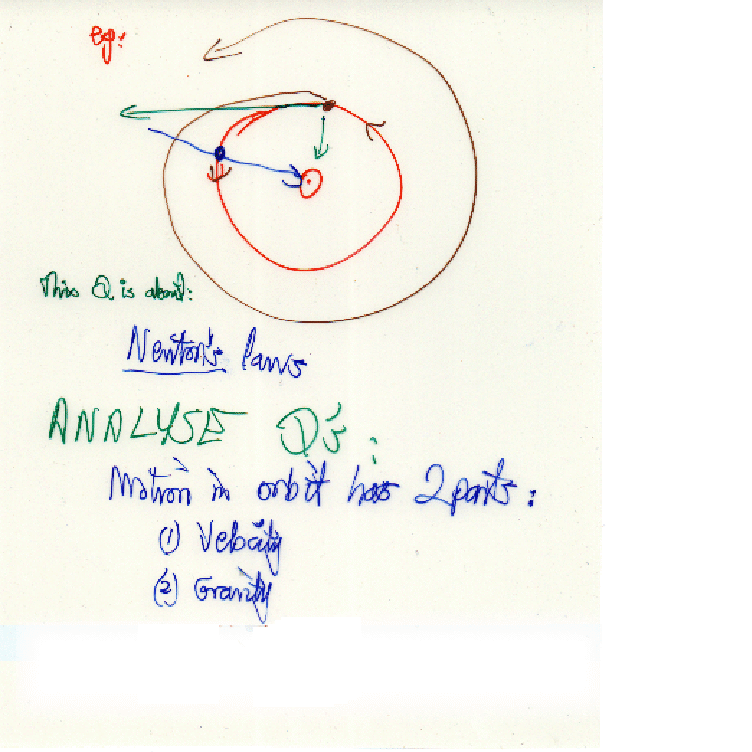 eg:
This Q is about:
Newton's laws
ANALYSE Q's:
Motion in orbit has 2 parts:
(1) Velocity
(2) Gravity